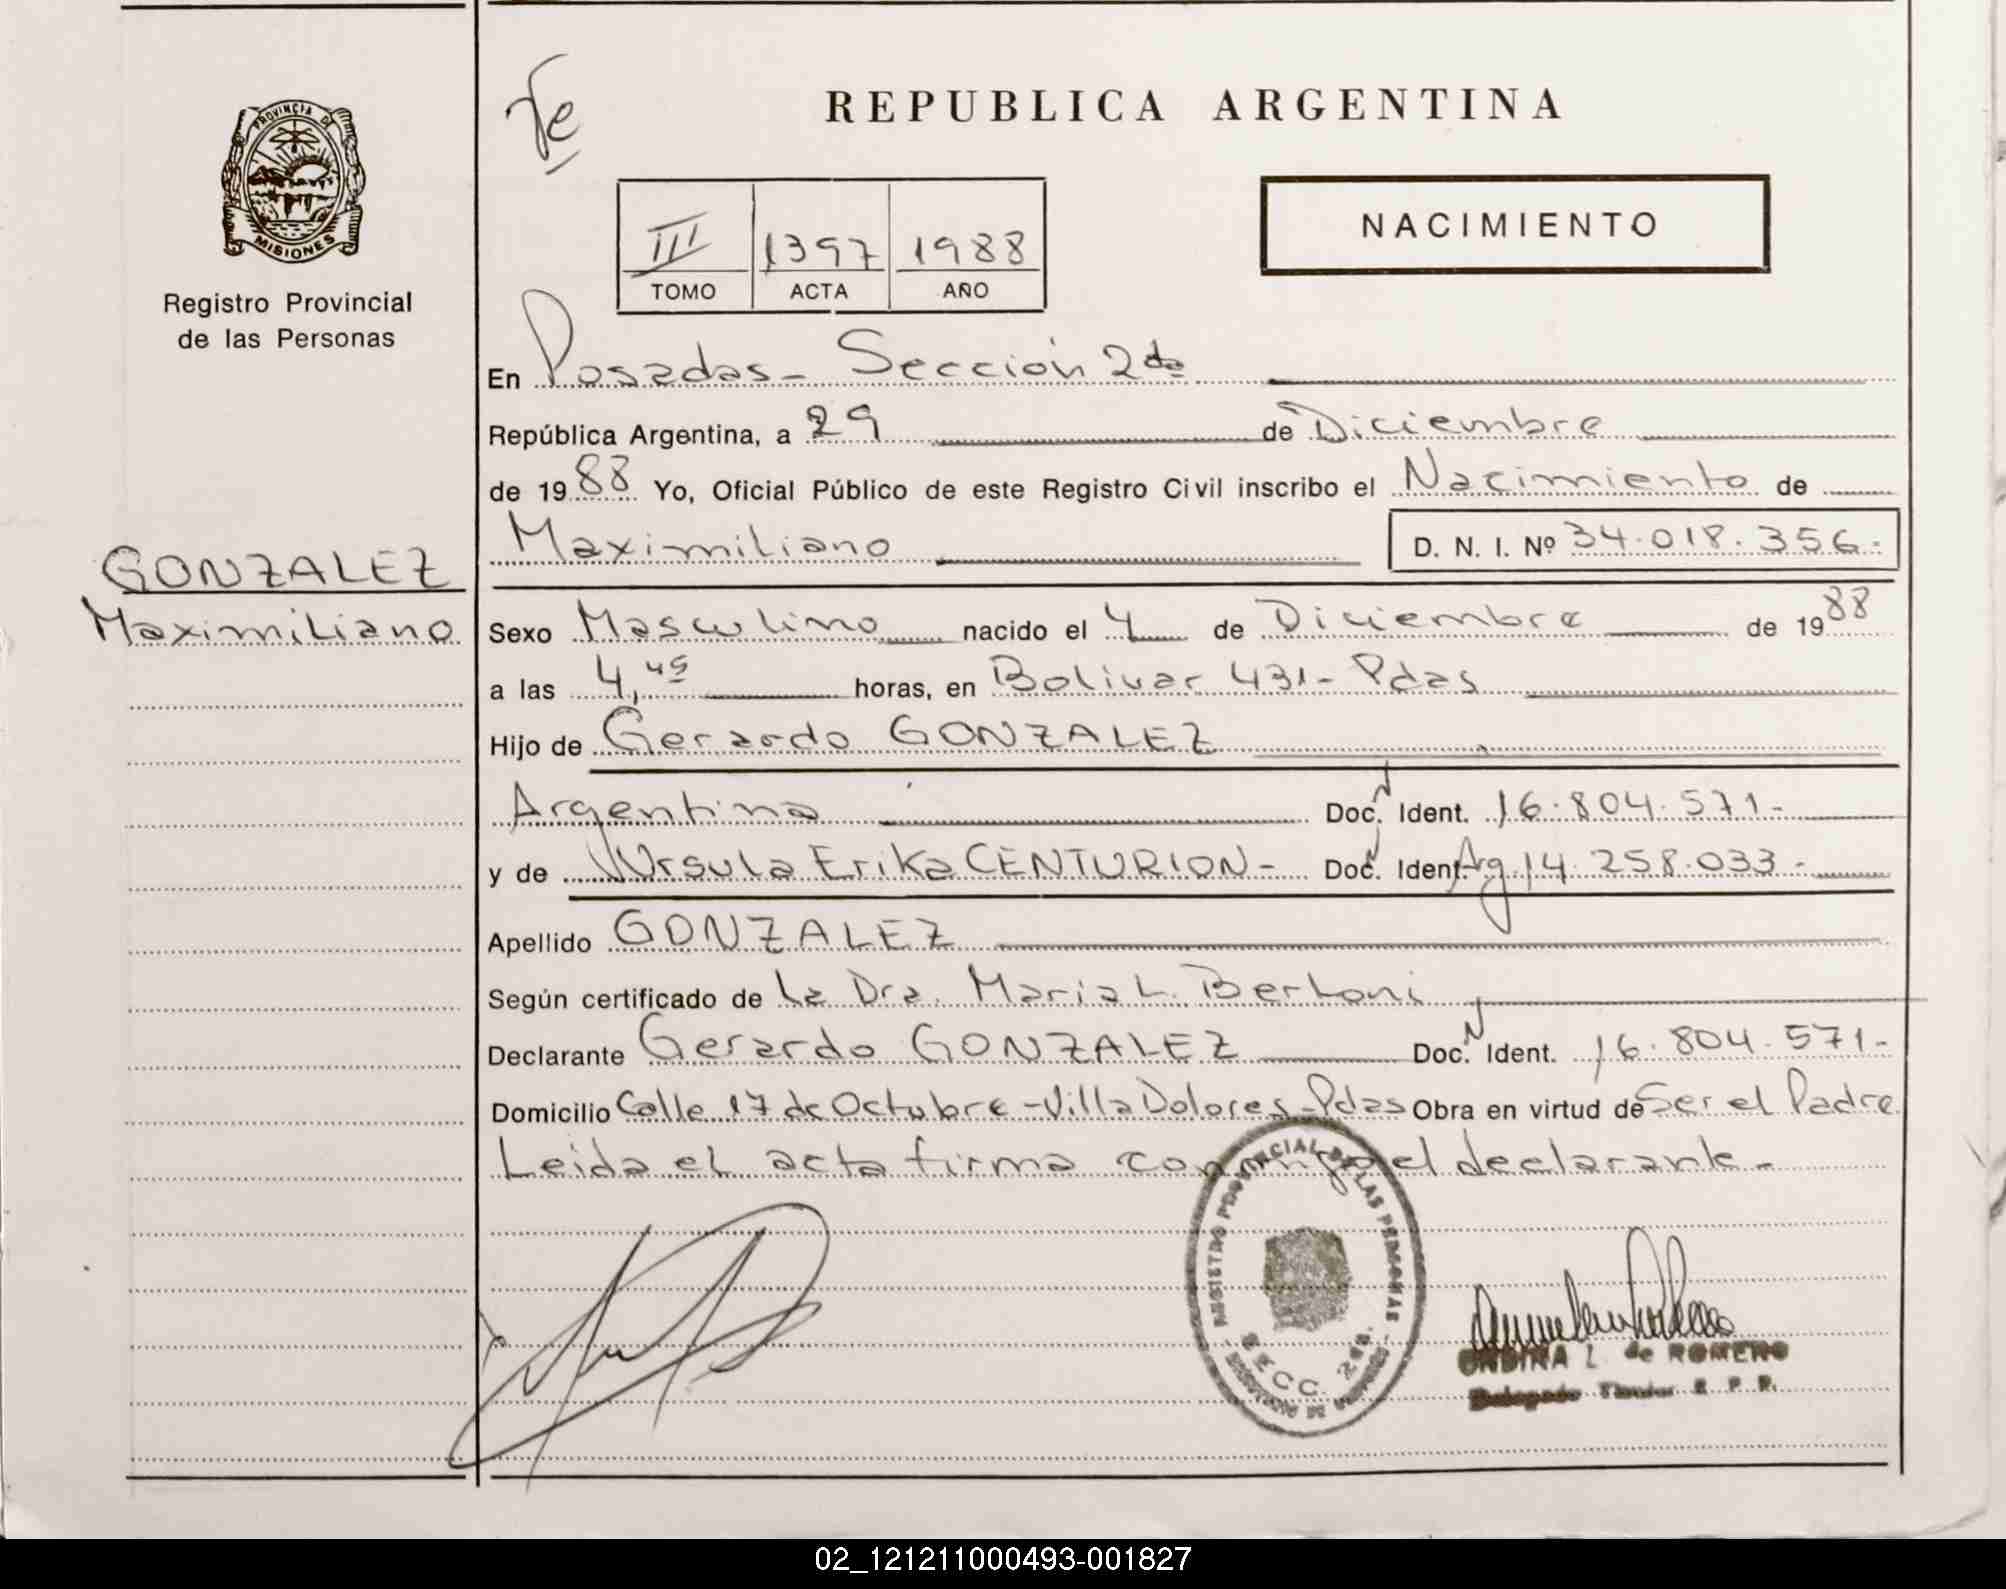 PROVINCIA DE
MISIONES
Registro Provincial
de las Personas
GONZALEZ
Maximiliano
REPUBLICA ARGENTINA
NACIMIENTO
III 1397 1988
TOMO ACTA AÑO
En Posadas - Sección 2da
República Argentina, a 29 de Diciembre
de 1988 Yo, Oficial Público de este Registro Civil inscribo el Nacimiento de
Maximiliano D. N. I. Nº 34.018.356.
Sexo Masculino nacido el 4 de Diciembre de 1988
a las 4,45 horas, en Bolivar 431 - Pdas
Hijo de Gerardo GONZALEZ
Argentina Doc. Ident. 16.804.571-
y de Ursula Erika CENTURION - Doc. Ident. Arg. 14.258.033-
Apellido GONZALEZ
Según certificado de La Dra. Maria L. Bertoni
Declarante Gerardo GONZALEZ Doc. Ident. 16.804.571-
Domicilio Calle 17 de Octubre - Villa Dolores - Pdas Obra en virtud de Ser el Padre
Leida el acta firma conmigo el declarante -
REGISTRO PROVINCIAL DE LAS PERSONAS
SECC. 2da.
ONDINA L. de ROMERO
Delegado Titular R. P. P.
02_121211000493-001827